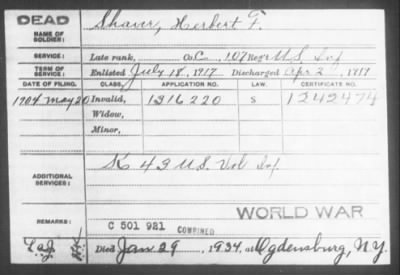 DEAD
NAME OF SOLDIER: Shaver, Herbert F.
SERVICE: Late rank, Co. C, 107 Reg't U.S. Inf
TERM OF SERVICE: Enlisted July 18, 1917 Discharged Apr 2, 1919
DATE OF FILING. CLASS. APPLICATION NO. LAW. CERTIFICATE NO.
1904 May 20 Invalid, 1316220 S 1242474
Widow,
Minor,
ADDITIONAL SERVICES: K 43 U.S. Vol Inf.
WORLD WAR
REMARKS: C 501 921 COMBINED
Died Jan 29, 1934, at Ogdensburg, N.Y.